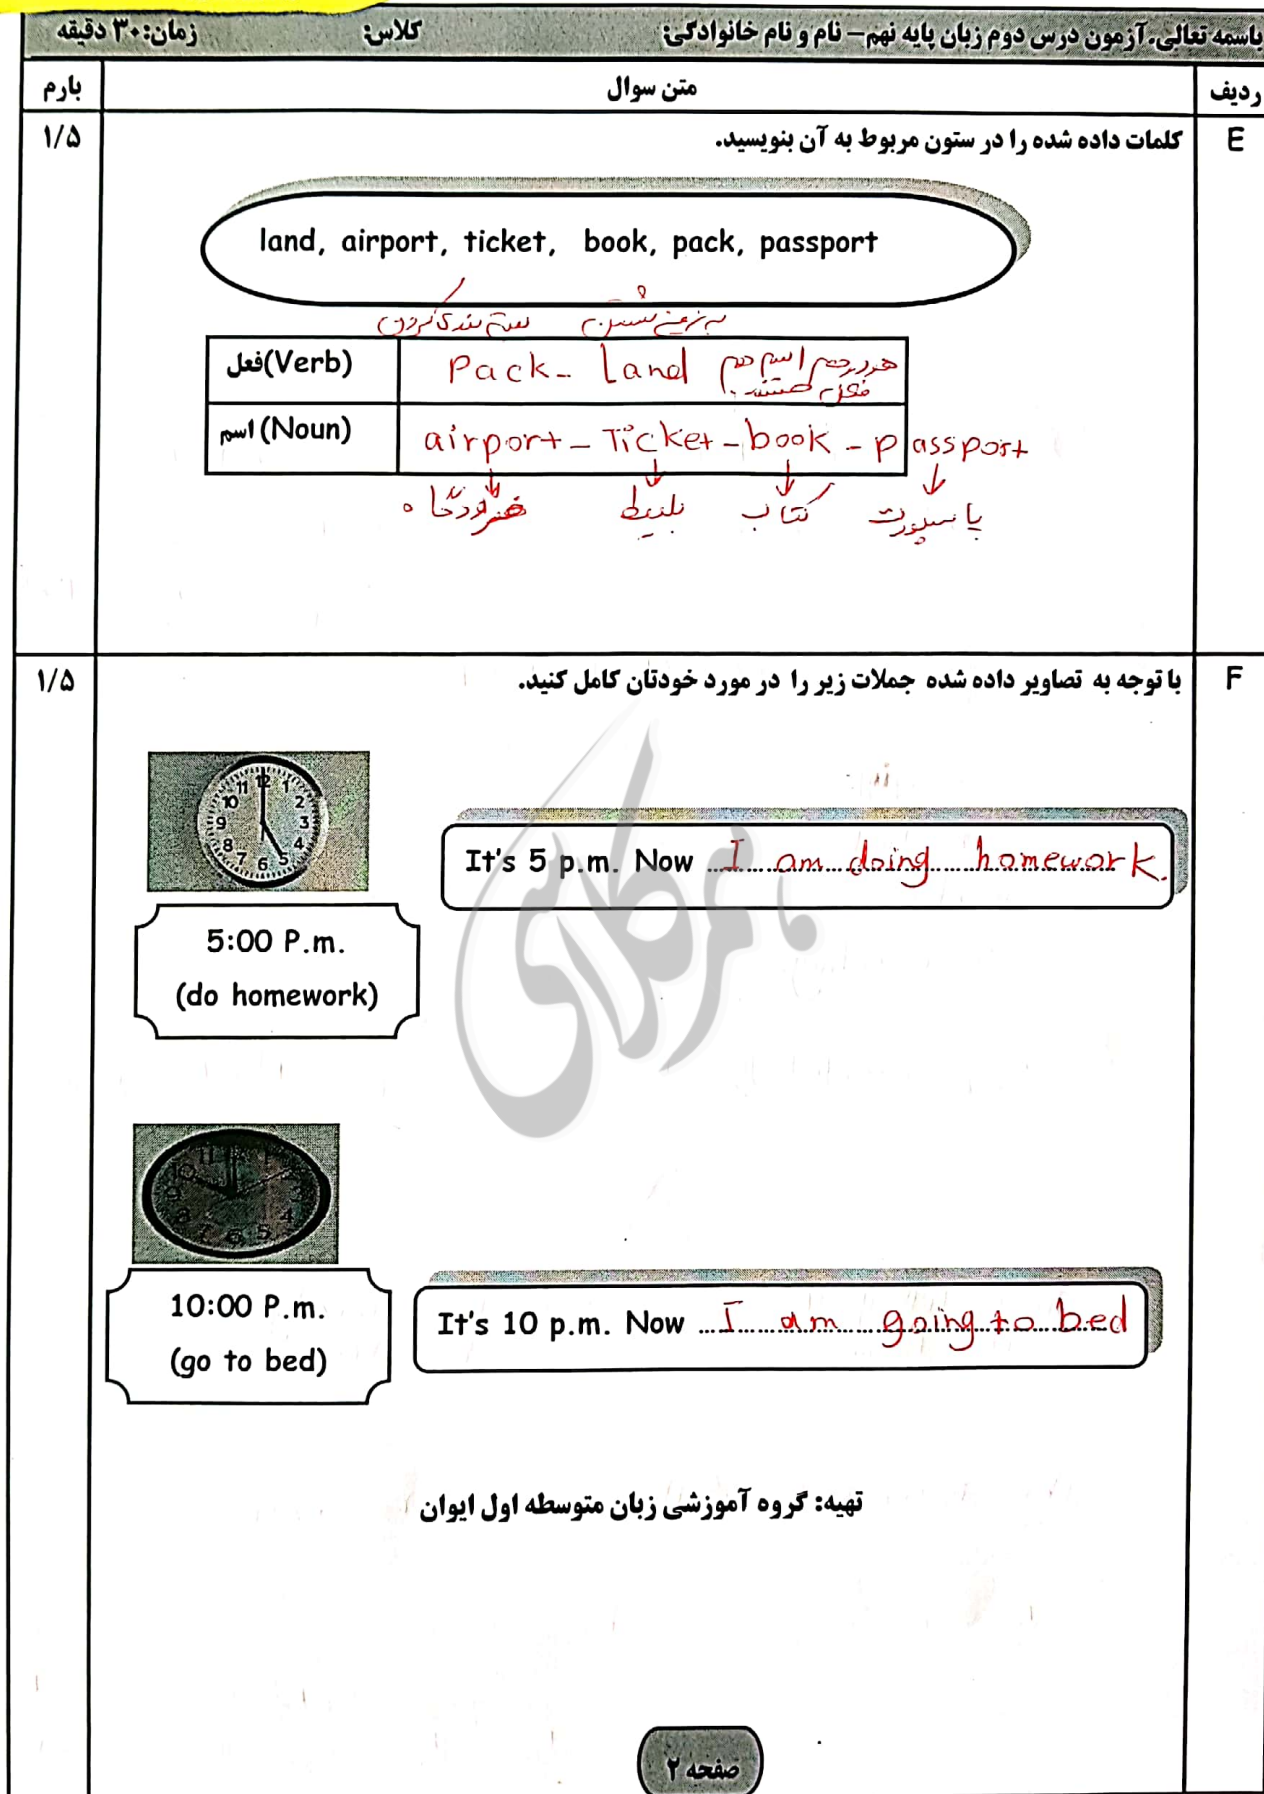 باسمه تعالی.آزمون درس دوم زبان پایه نهم- نام و نام خانوادگی: کلاس: زمان:۳۰ دقیقه
ردیف متن سوال بارم
E کلمات داده شده را در ستون مربوط به آن بنویسید. ۱/۵
land, airport, ticket, book, pack, passport
بسته بندی کردن به زمین نشستن
فعل(Verb) Pack - Land هر دو هم اسم هم
فعل هستند.
اسم (Noun) airport - Ticket - book - passport
فرودگاه بلیط کتاب پاسپورت
F با توجه به تصاویر داده شده جملات زیر را در مورد خودتان کامل کنید. ۱/۵
11 12 1
10 2
9 3
8 4
7 6 5
It's 5 p.m. Now I am doing homework.
5:00 P.m.
(do homework)
همرکلاسی
It's 10 p.m. Now I am going to bed
10:00 P.m.
(go to bed)
تهیه: گروه آموزشی زبان متوسطه اول ایوان
صفحه ۲